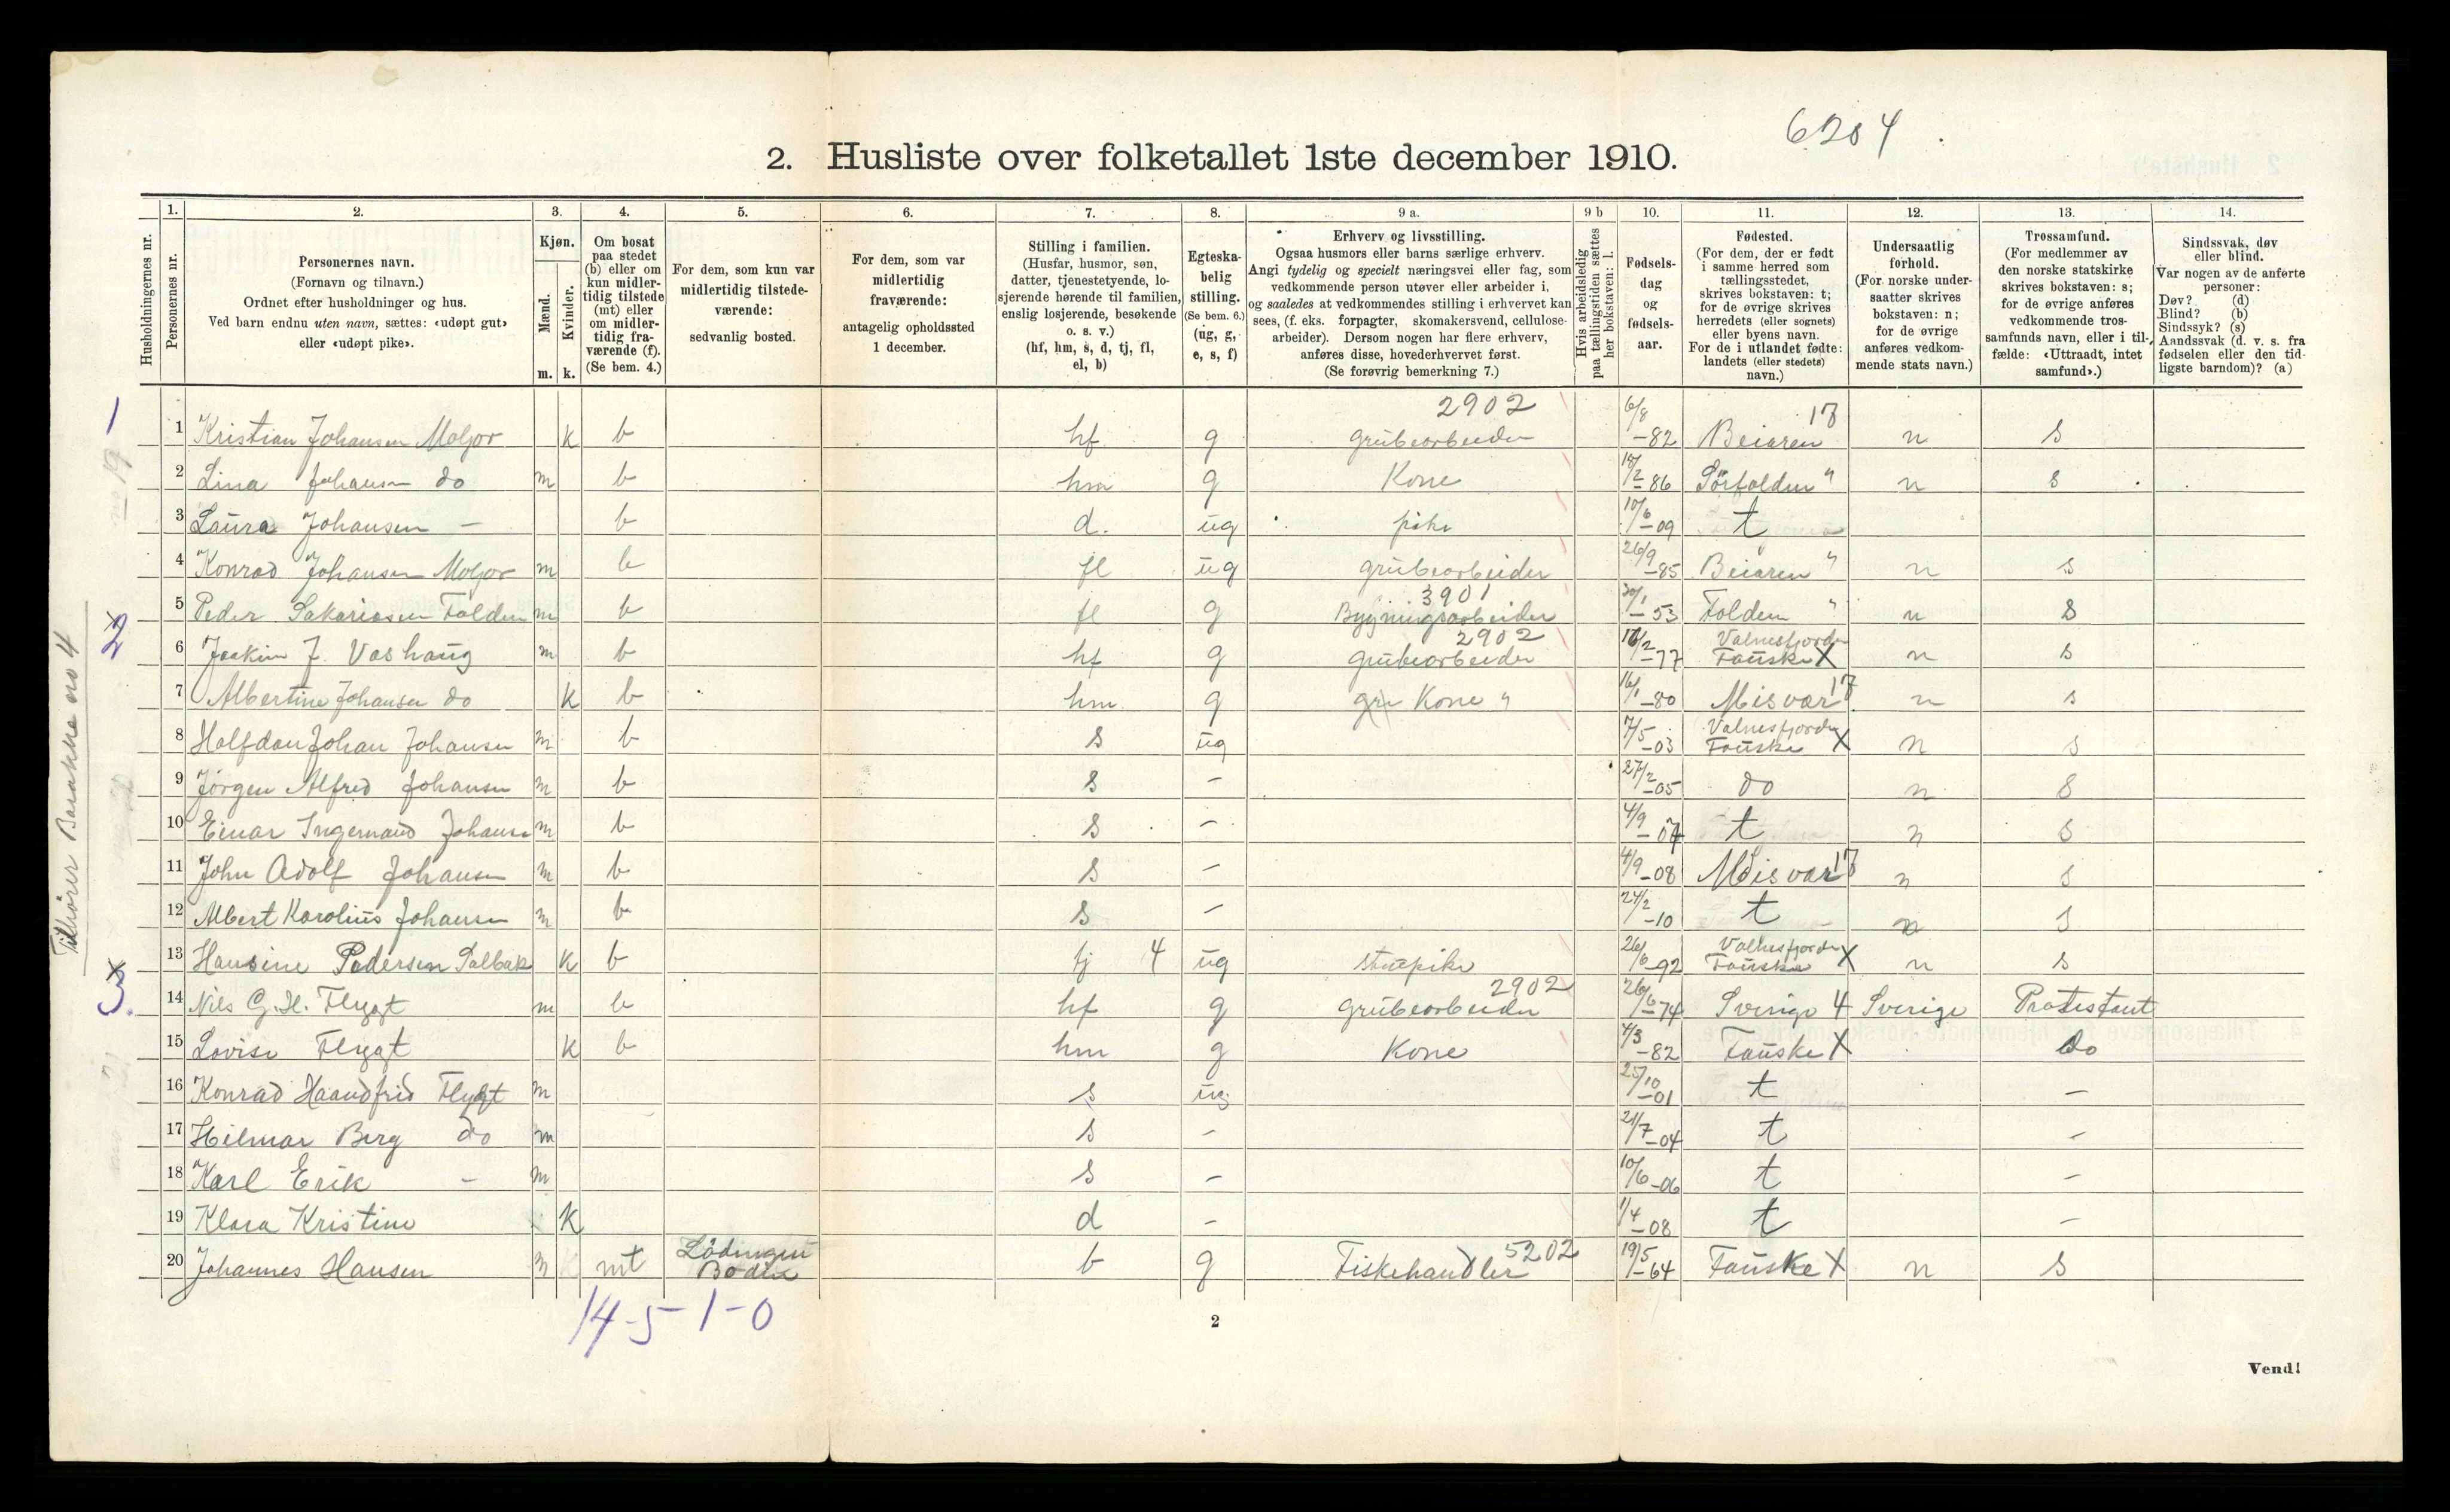 6204
2. Husliste over folketallet 1ste december 1910.
Husholdningernes nr.
1.
Personernes nr.
2.
Personernes navn.
(Fornavn og tilnavn.)
Ordnet efter husholdninger og hus.
Ved barn endnu uten navn, sættes: «udøpt gut»
eller «udøpt pike».
3.
Kjøn.
Mænd.
Kvinder.
m. k.
4.
Om bosat
paa stedet
(b) eller om
kun midler-
tidig tilstede
(mt) eller
om midler-
tidig fra-
værende (f).
(Se bem. 4.)
5.
For dem, som kun var
midlertidig tilstede-
værende:
sedvanlig bosted.
6.
For dem, som var
midlertidig
fraværende:
antagelig opholdssted
1 december.
7.
Stilling i familien.
(Husfar, husmor, søn,
datter, tjenestetyende, lo-
sjerende hørende til familien,
enslig losjerende, besøkende
o. s. v.)
(hf, hm, s, d, tj, fl,
el, b)
8.
Egteska-
belig
stilling.
(Se bem. 6.)
(ug, g,
e, s, f)
9 a.
Erhverv og livsstilling.
Ogsaa husmors eller barns særlige erhverv.
Angi tydelig og specielt næringsvei eller fag, som
vedkommende person utøver eller arbeider i,
og saaledes at vedkommendes stilling i erhvervet kan
sees, (f. eks. forpagter, skomakersvend, cellulose-
arbeider). Dersom nogen har flere erhverv,
anføres disse, hovederhvervet først.
(Se forøvrig bemerkning 7.)
9 b
Hvis arbeidsledig
paa tællingstiden sættes
her bokstaven: l.
10.
Fødsels-
dag
og
fødsels-
aar.
11.
Fødested.
(For dem, der er født
i samme herred som
tællingsstedet,
skrives bokstaven: t;
for de øvrige skrives
herredets (eller sognets)
eller byens navn.
For de i utlandet fødte:
landets (eller stedets)
navn.)
12.
Undersaatlig
forhold.
(For norske under-
saatter skrives
bokstaven: n;
for de øvrige
anføres vedkom-
mende stats navn.)
13.
Trossamfund.
(For medlemmer av
den norske statskirke
skrives bokstaven: s;
for de øvrige anføres
vedkommende tros-
samfunds navn, eller i til-
fælde: «Uttraadt, intet
samfund».)
14.
Sindssvak, døv
eller blind.
Var nogen av de anførte
personer:
Døv? (d)
Blind? (b)
Sindssyk? (s)
Aandssvak (d. v. s. fra
fødselen eller den tid-
ligste barndom)? (a)
Tilhører Barakke no 4
1
2902 17
1 Kristian Johansen Moljor k b hf g grubearbeider 6/8-82 Beiaren n s
2 Lina Johansen do m b hm g Kone 18/2-86 Sörfolden " n s
3 Laura Johansen — b d. ug pike 10/6-09 t
4 Konrad Johansen Moljor m b fl ug grubearbeider 26/9-85 Beiaren " n s
3901
5 Peder Sakariasen Folden m b fl g Bygningsarbeider 30/1-53 Folden " n s
2
2902 Valnesfjorden
6 Joakim J. Vashaug m b hf g grubearbeider 16/2-77 Fauske X n s
7 Albertine Johansen do k b hm g Kone " 16/1-80 Misvær 17 n s
Valnesfjorden
8 Halfdan Johan Johansen m b s ug 7/5-03 Fauske X n s
9 Jørgen Alfred Johansen m b s - 27/2-05 do n s
10 Einar Ingemand Johansen m b s - 4/9-07 t n s
11 John Adolf Johansen m b s - 4/9-08 Misvær 17 n s
12 Albert Karolius Johansen m b s - 24/2-10 t n s
Valnesfjorden
13 Hansine Pedersen Salbak k b tj 4 ug stuepike 26/6-92 Fauske X n s
3.
2902
14 Nils G. H. Flygt m b hf g grubearbeider 26/6-74 Sverige 4 Sverige Protestant
15 Lovise Flygt k b hm g Kone 4/3-82 Fauske X do
16 Konrad Haandfrid Flygt m s ug 25/10-01 t —
17 Hilmar Berg do m s - 21/7-04 t -
18 Karl Erik - m s - 10/6-06 t -
19 Klara Kristine k d - 1/4-08 t -
Lödingen 5202
20 Johannes Hansen m mt Bodin b g Fiskehandler 19/5-64 Fauske X n s
14-5-1-0
2
Vend!